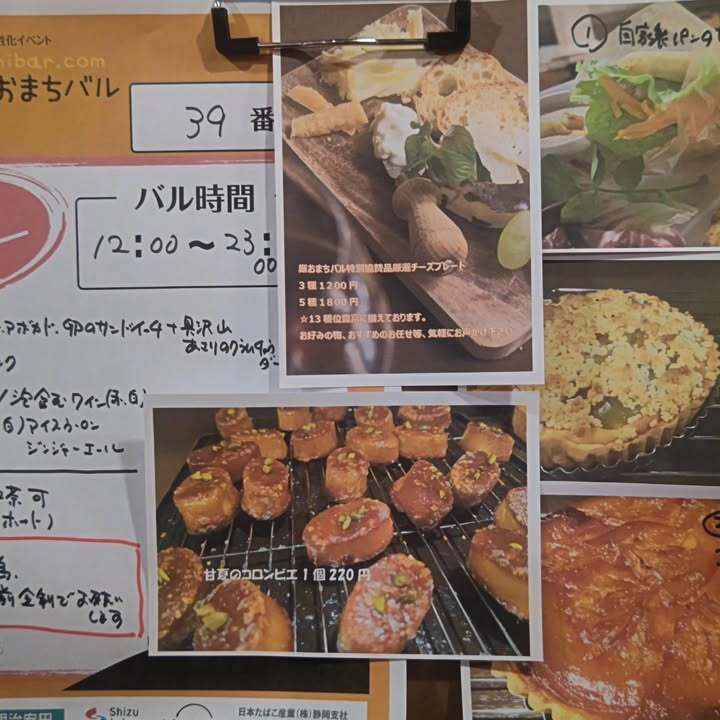 性化イベント
ibar.com
おまちバル
39 番
バル時間
12:00〜23:
00
アボカド、卵のサンドイッチ+具沢山
あさりのクラムチャウ
ダー
ック
/泡含むワイン(赤、白)
アイスウーロン
ジンジャーエール
茶可
ホット)
前金制でお願い
します
厳おまちバル特別協賛品厳選チーズプレート
3種1200円
5種1800円
☆13種位豊富に揃えております。
お好みの物、おすすめのお任せ等、気軽にお声かけ下さい
① 自家製パンの
甘夏のコロンビエ1個220円
明治安田
Shizu
日本たばこ産業(株)静岡支社